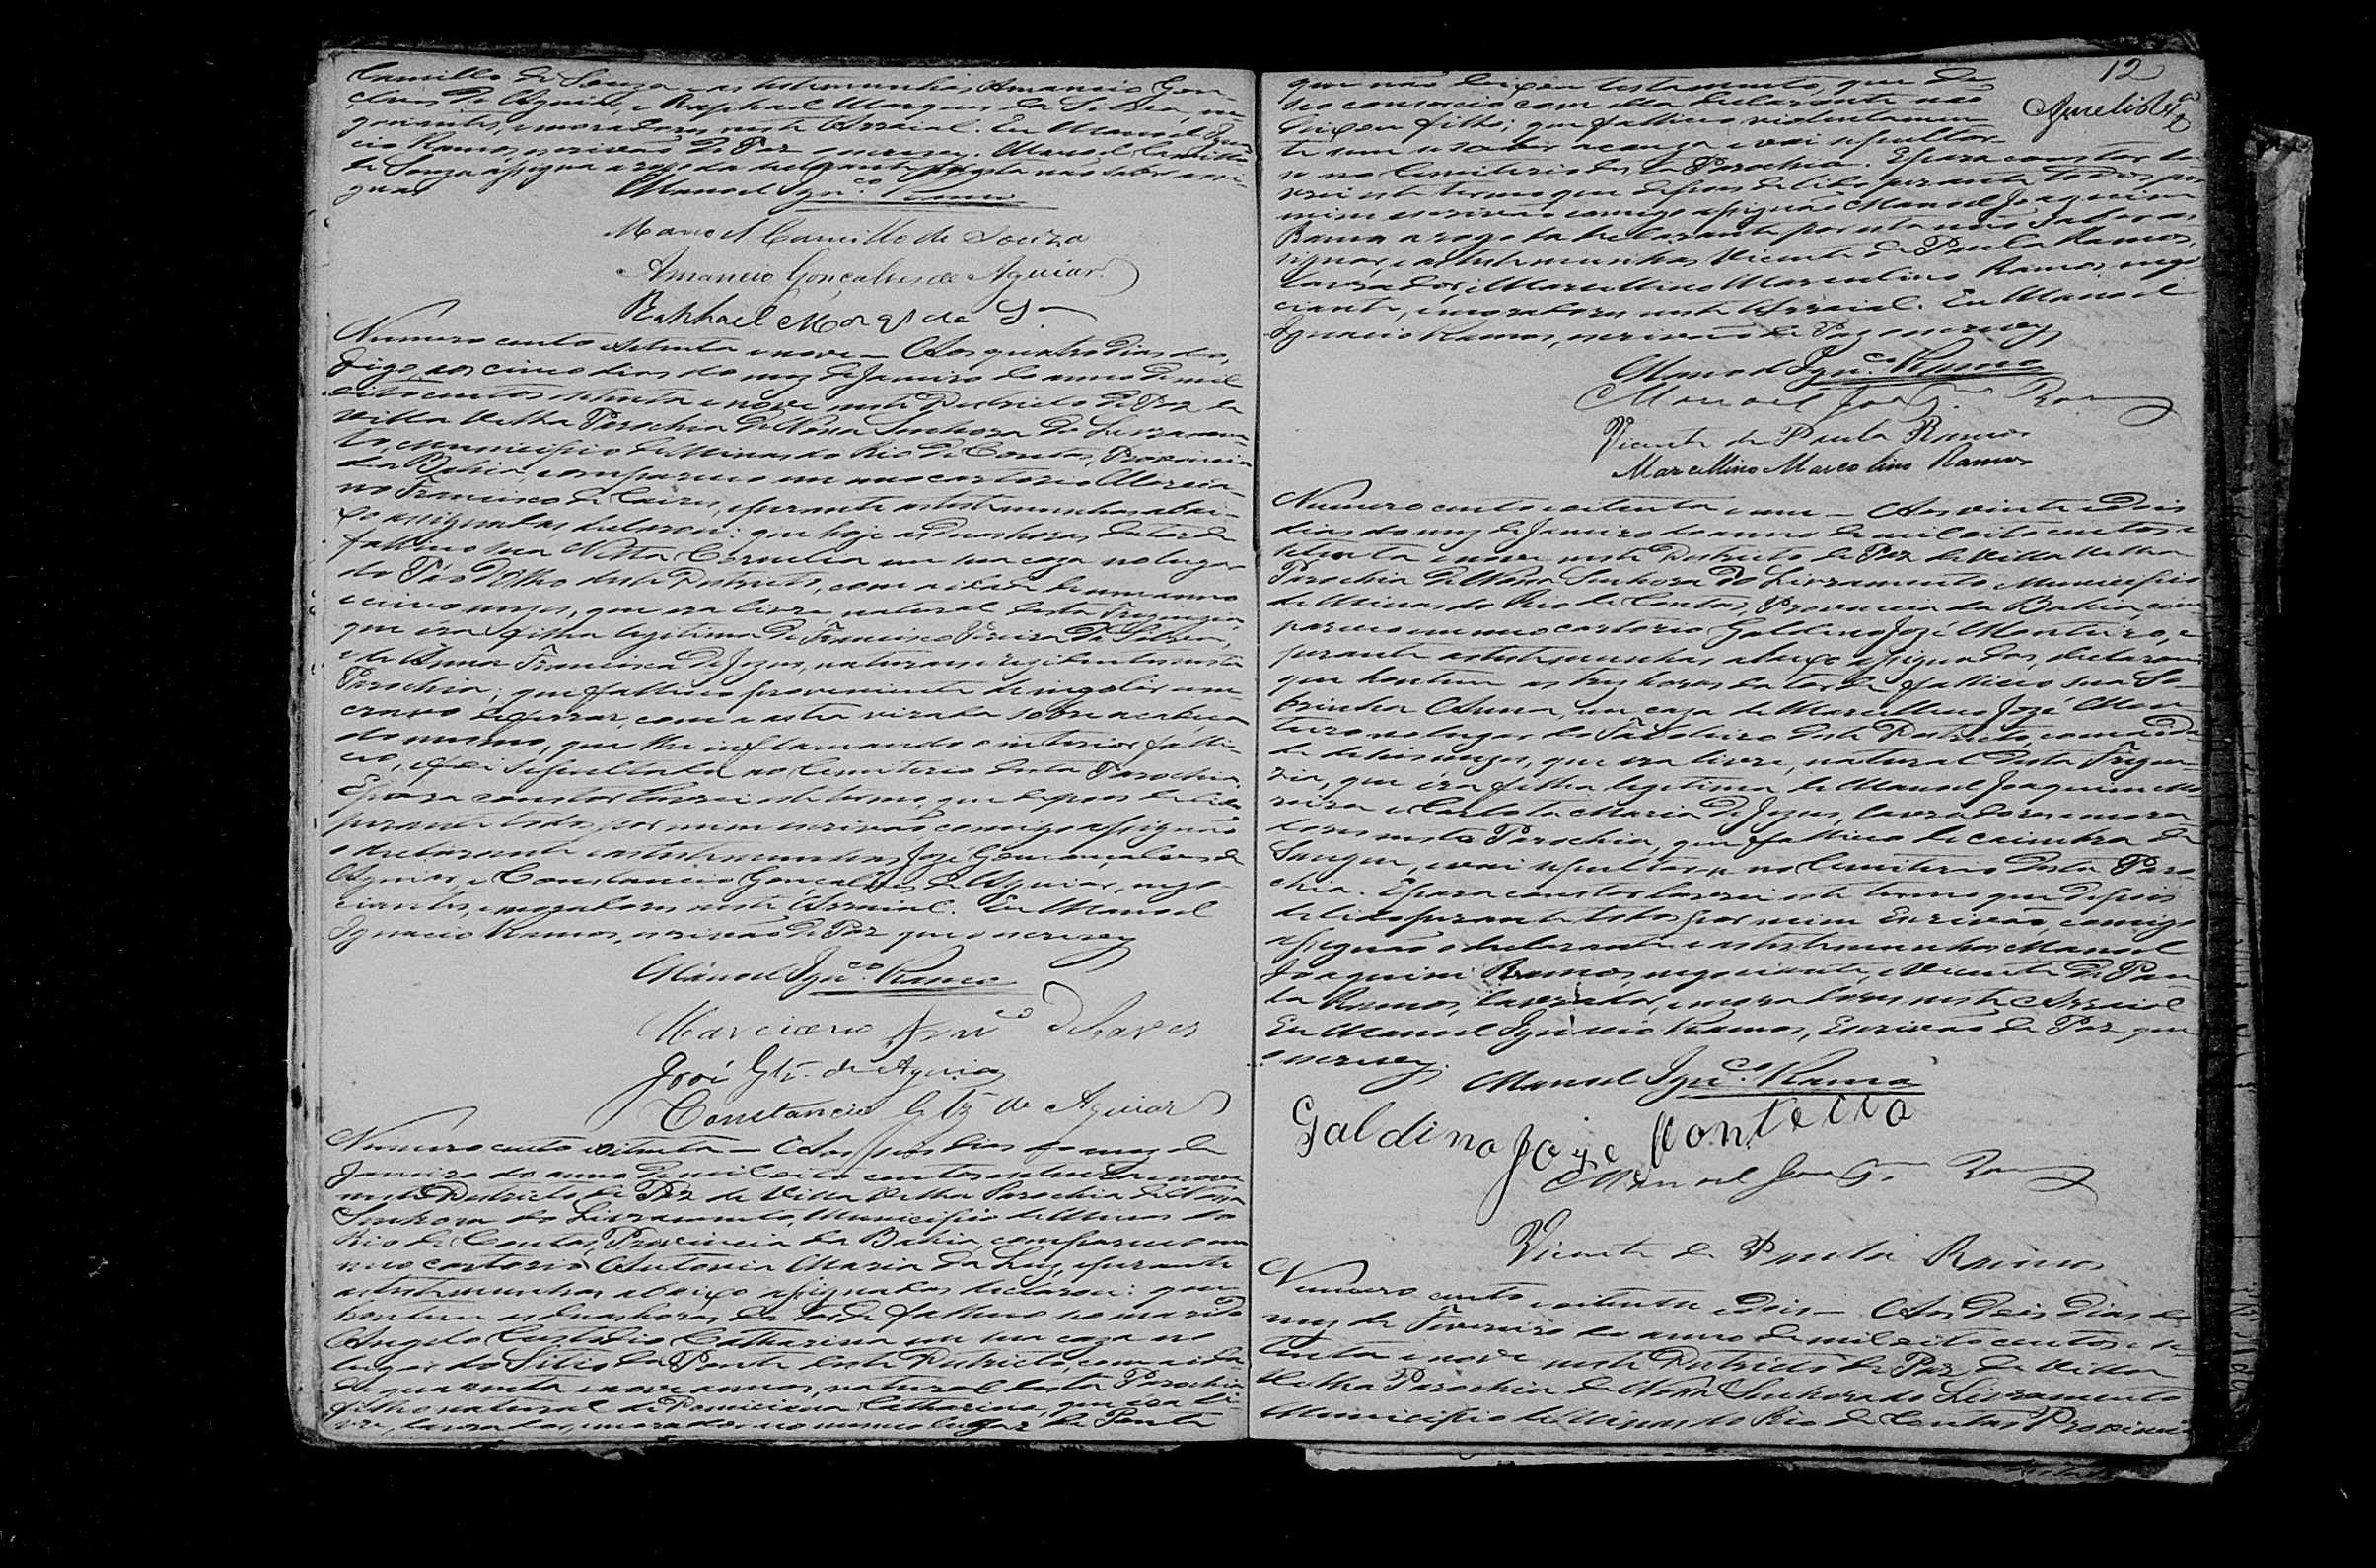 Camillo de Souza e as testemunhas Amancio Gon-
çalves de Aguiar, e Raphael Marques da Silva, ne-
gociantes, e moradores neste Arraial. Eu Manoel Igna-
cio Ramos, escrivão de Paz escrevy. Manoel Camillo
de Souza assigna a rogo da declarante por esta não saber assi-
gnar
Manoel Ign.co Ramos
Manoel Camillo de Souza
Amancio Gonçalves de Aguiar
Raphael Marqs da Sa
Numero cento e setenta e nove — Aos quatro dias do,
digo, aos cinco dias do mez de Janeiro do anno de mil
oito centos e setenta e nove neste Districto de Paz da
Villa Velha Parochia de Nossa Senhora do Livramen-
to, Municipio de Minas do Rio de Contas, Provincia
da Bahia, compareceo em meo cartorio Marcia-
no Francisco de Caires, e perante as testemunhas abai-
xo assignadas, declarou: que hoje as duas horas da tarde
falleceo sua Netta Cornelia em sua caza no lugar
do Páo d'Olho deste Districto, com a idade de um anno
e cinco mezes, que era livre, natural desta Freguezia,
que éra filha legitima de Francisco Vieira da Silva,
e de Anna Francisca de Jezus, naturaes e rezidentes nesta
Parochia; que falleceo proveniente de ingolir um
cravo de ferrar, com a astia virada sobre a cabeça
do mesmo, que lhe inflamando o interior falle-
ceo, e foi sepultada no Cemiterio desta Parochia.
E para constar lavrei este termo, que depois de lido
perante todos por mim escrivão comigo assignão
o declarante e as testemunhas José Gonçalves de
Aguiar, e Constancio Gonçalves de Aguiar, nego-
ciantes, e moradores neste Arraial. Eu Manoel
Ignacio Ramos, escrivão de Paz que o escrevy
Manoel Ign.co Ramos
Marciano Franco de Caires
José Glz. de Aguiar
Constancio Glz de Aguiar
Numero cento e oitenta — Aos seis dias do mez de
Janeiro do anno de mil oito centos e setenta e nove
neste Districto de Paz de Villa Velha Parochia de Nossa
Senhora do Livramento, Municipio de Minas do
Rio de Contas, Provincia da Bahia, compareceo em
meo cartorio Antonia Maria da Luz, e perante
as testemunhas abaixo assignadas declarou: que
hontem as duas horas da tarde falleceo seo marido
Angelo Custodio Catharina em sua caza no
lugar do Sitio da Ponte deste Districto, com a idade
de quarenta e nove annos, natural desta Parochia
filho natural de Catharina, que éra li-
vre, lavrador, morador no mesmo lugar da Ponte
12
Aurelio
que não deixou testamento, que de
seo consorcio com ella declarante não
deixou filho; que falleceo violentamen-
te sem se saber a cauza e vai sepultar-
se no Cemiterio desta Parochia. E para constar la-
vrei este termo que depois de lido perante todos por
mim escrivão comigo assignão Manoel Joaquim
Ramos a rogo da declarante por esta não saber as-
signar, e as testemunhas Vicente de Paula Ramos,
lavrador, e Marcellino Marcolino Ramos, nego-
ciante, e moradores neste Arraial. Eu Manoel
Ignacio Ramos, escrivão de Paz o escrevy
Manoel Ign.co Ramos
Manoel Joaqm Ramos
Vicente de Paula Ramos
Marcellino Marcolino Ramos
Numero cento e oitenta e um — Aos vinte e dois
dias do mez de Janeiro do anno de mil oito centos e
setenta e nove neste Districto de Paz de Villa Velha
Parochia de Nossa Senhora do Livramento Municipio
de Minas do Rio de Contas, Provincia da Bahia, com-
pareceo em meo cartorio Galdino José Monteiro, e
perante as testemunhas abaixo assignadas, declarou
que hontem as tres horas da tarde falleceo sua So-
brinha Anna, em caza de Marcellino José Mon-
teiro no lugar do Taboleiro deste Districto, com a ida-
de de seis mezes, que era livre, natural desta Fregue-
zia, que éra filha legitima de Manoel Joaquim Mo-
reira e Carlota Maria de Jezus, lavradores e mora-
dores nesta Parochia, que falleceo de caimbra de
Sangue, e vai sepultar-se no Cemiterio desta Paro-
chia. E para constar lavrei este termo que depois
de lido perante todos por mim Escrivão, comigo
assignão o declarante e as testemunhas Manoel
Joaquim Ramos, negociante, e Vicente de Pau-
la Ramos, lavrador, e moradores neste Arraial
Eu Manoel Ignacio Ramos, Escrivão de Paz que
o escrevy.
Manoel Ign.co Ramos
Galdino Joze Monteiro
Manoel Joaqm Ramos
Vicente de Paula Ramos
Numero cento e oitenta e dois — Aos dois dias do
mez de Fevereiro do anno de mil oito centos e se-
tenta e nove neste Districto de Paz da Villa
Velha Parochia de Nossa Senhora do Livramento
Municipio de Minas do Rio de Contas Provincia